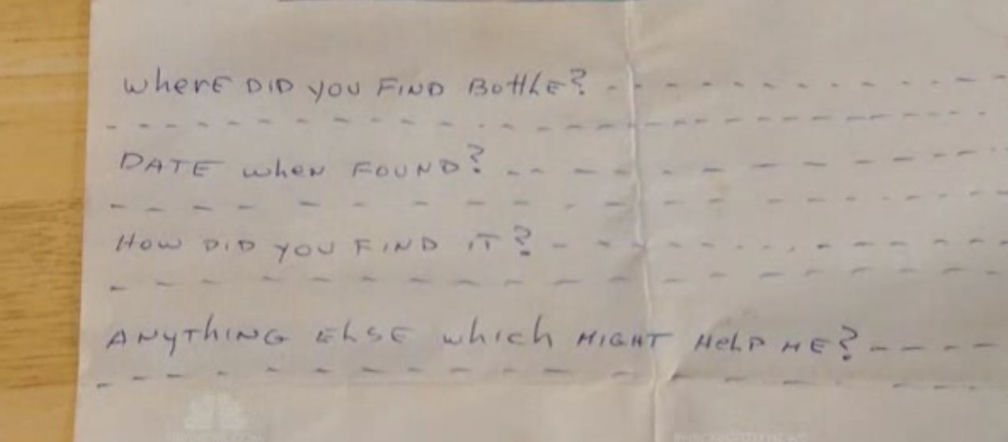 where DID you FIND Bottle? - - - - - - - - - -
- - - - - - - - - - - - - - - - - - - -
DATE when FOUND? - - - - - - - - -
- - - - - - - - - - - - - - - -
How DID you FIND IT? - - - - - - - - - - -
- - - - - - - - - - - - - - - - -
ANyThING ELSE which MIGHT HeLP ME? - - - -
- - - - - - - - - - - - - - - -